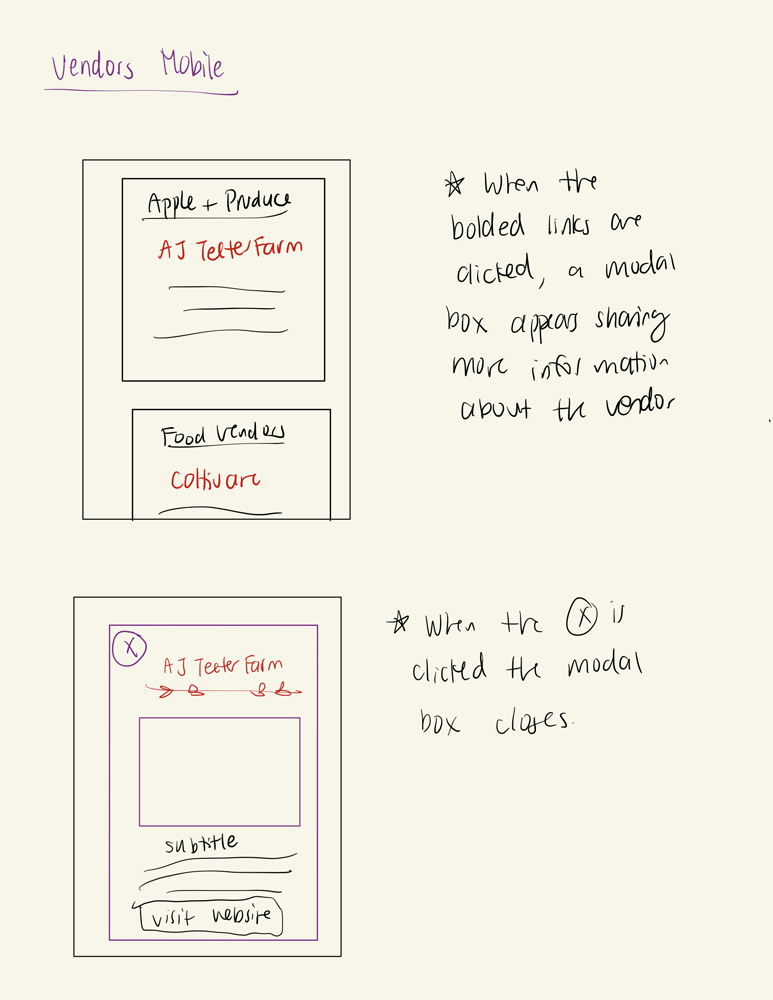 Vendors Mobile
Apple + Produce
AJ Teeter Farm
Food Vendors
Coltivare
☆ When the
bolded links are
clicked, a modal
box appears sharing
more information
about the vendor
X
AJ Teeter Farm
subtitle
visit website
☆ When the Ⓧ is
clicked the modal
box closes.